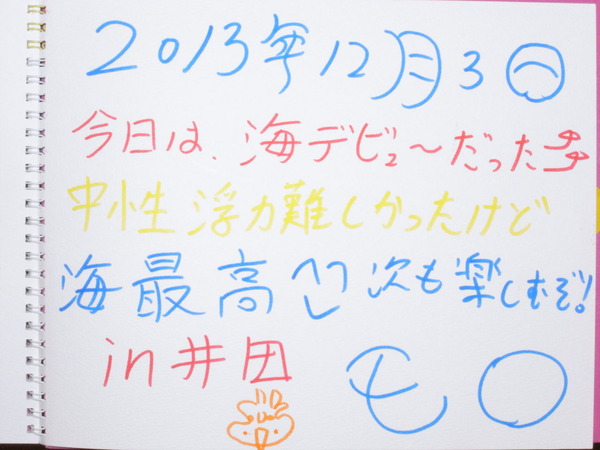 2013年12月3日
今日は、海デビュ〜だった
中性浮力難しかったけど
海最高 次も楽しむぞ!
in井田